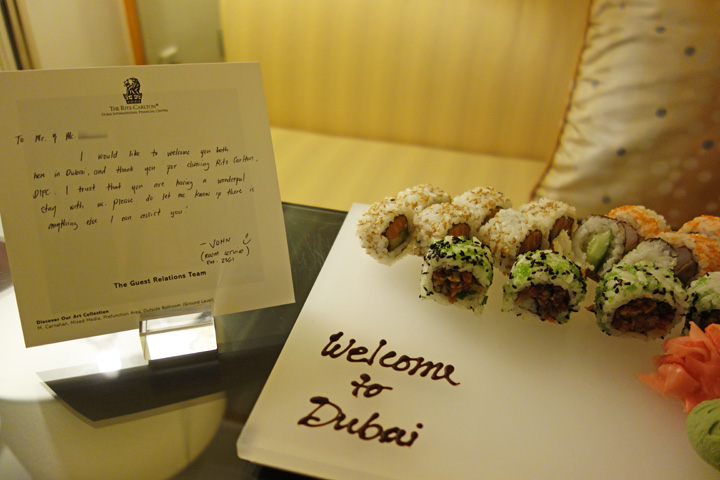 THE RITZ-CARLTON®
DUBAI INTERNATIONAL FINANCIAL CENTRE
To Mr. & Mr.
I would like to welcome you both
here in Dubai, and thank you for choosing Ritz Carlton,
DIFC. I trust that you are having a wonderful
stay with us. please do let me know if there is
anything else I can assist you.
- JOHN
EXT. 2301
The Guest Relations Team
Discover Our Art Collection
M. Carnahan, Mixed Media, Prefunction Area, Outside Ballroom (Ground Level)
Welcome
to
Dubai